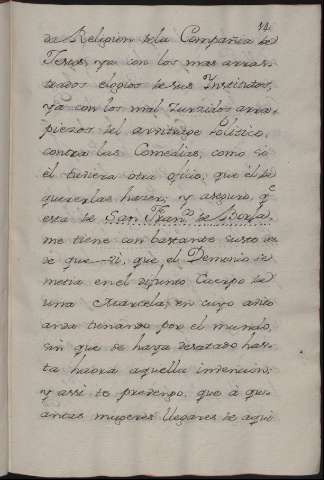 14.
da Religion dela Compañia de
Jesus, ya con los mas arras-
trados elogios desus Institutos,
ya con los mal zurzidos arra-
piezos del arvitrage Politico,
contra las Comedias, como si
él tuviera otra oficio, que él de
quererlas hacer; y aseguro, q.e
esta de San Fran.co de Borja,
me tiene con bastante susto des
de que vi, que el Demonio se
metia en el difunto Cuerpo de
una Marcela, en cuyo anto
anda tienando por el mundo,
sin que se haya desatado has-
ta haora aquella intencion;
y assi te prevengo, que à qu-
antas mugeres llegares de aqui